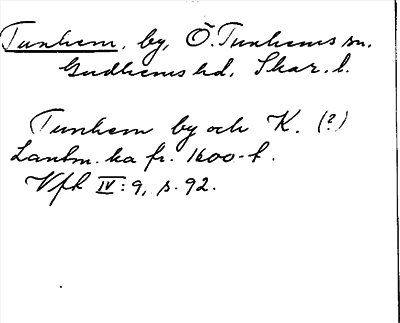 Tunhem, by, Ö. Tunhems sn.
Gudhems hd, Skar. l.
Tunhem by och K. (?)
Lantm. ka fr. 1600-t.
Vfh IV: 9, s. 92.